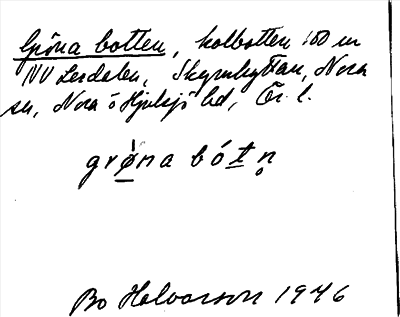 Gröna botten, kolbotten 100 m
NV Lerdalen, Skrikarhyttan, Nora
sn, Nora o Hjulsjö hd, Ör. l.
grø̀na bót̲n̥
Bo Halvarson 1946